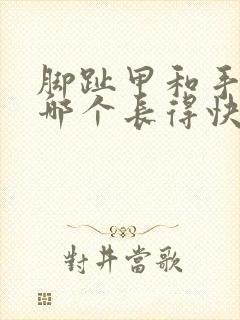 脚趾甲和手
哪个长得快
對井當歌